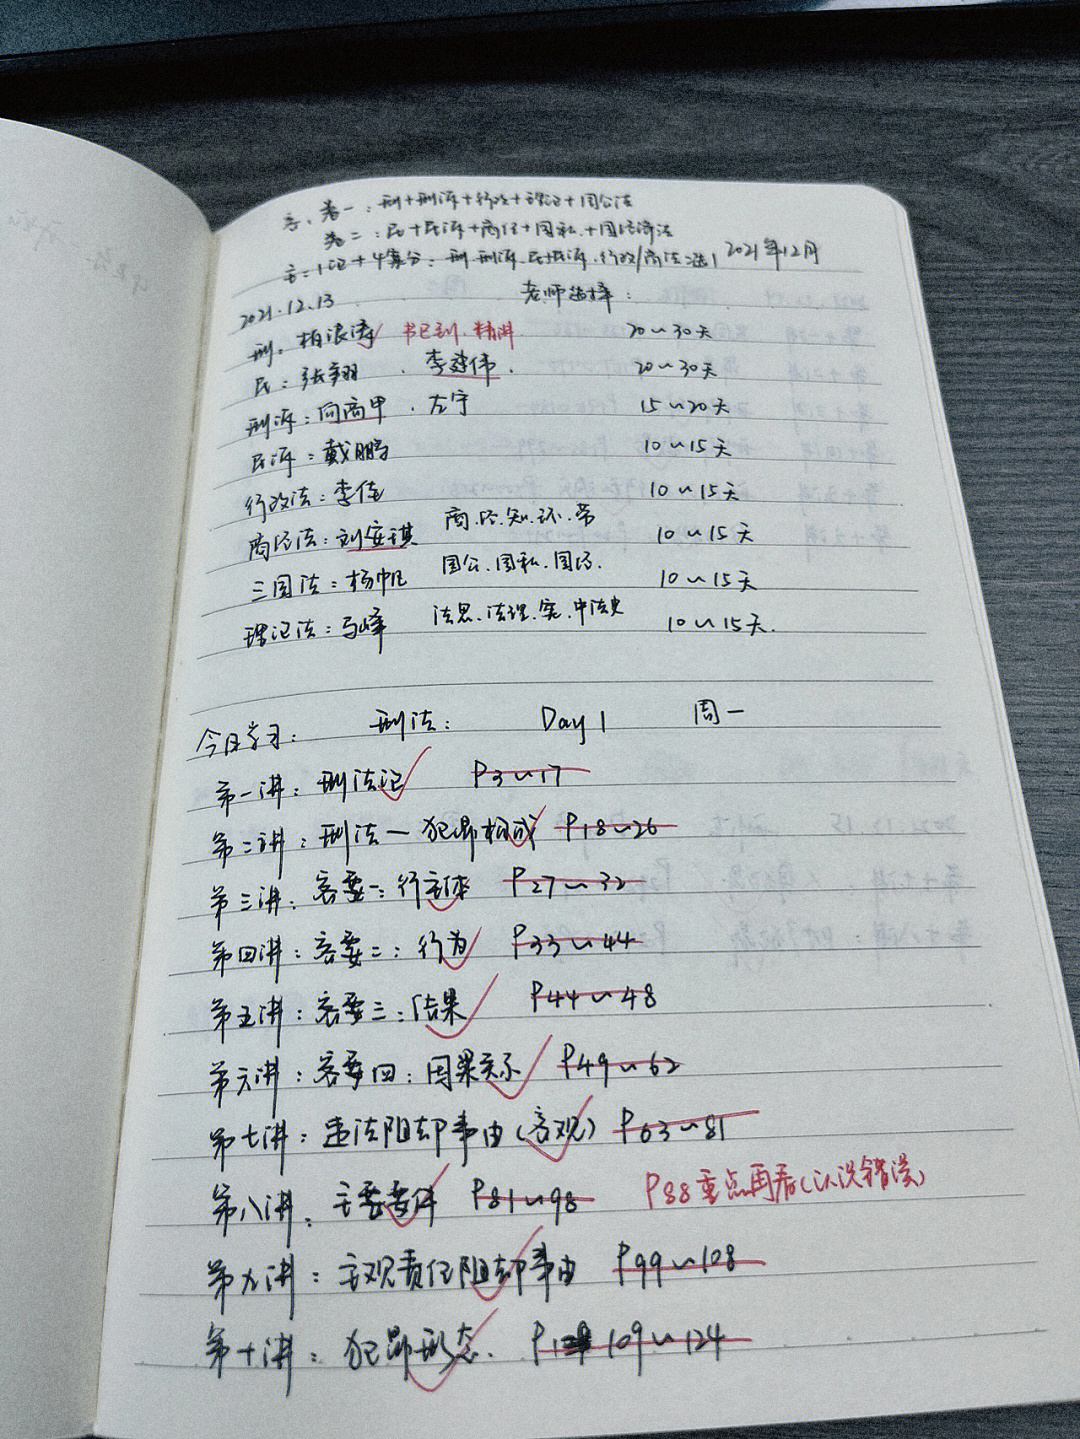 客、卷一：刑+刑诉+行政+理论+国公法
卷二：民+民诉+商经+国私+国经济法
主：1论+4案分：刑 刑诉 民+民诉 行政/商法选1 2021年12月
2021.12.13 老师选择：
刑：柏浪涛 书已到.精讲 20~30天
民：张翔 . 李建伟. 20~30天
刑诉：向高甲 . 左宁 15~20天
民诉：戴鹏 10~15天
行政法：李佳 10~15天
商经法：刘安琪 商.经.知.环.劳 10~15天
三国法：杨帆 国公.国私.国经. 10~15天
理论法：马峰 法思.法理.宪.中法史 10~15天.
今日学习： 刑法： Day 1 周一
第一讲：刑法论 P3~17
第二讲：刑法一犯罪构成 P18~26
第三讲：客要一：行主体 P27~32
第四讲：客要二：行为 P33~44
第五讲：客要三：结果 P44~48
第六讲：客要四：因果关系 P49~62
第七讲：违法阻却事由(客观) P63~81
第八讲：主要要件 P81~98 P88重点再看(认识错误)
第九讲：主观责任阻却事由 P99~108
第十讲：犯罪形态. P109~124